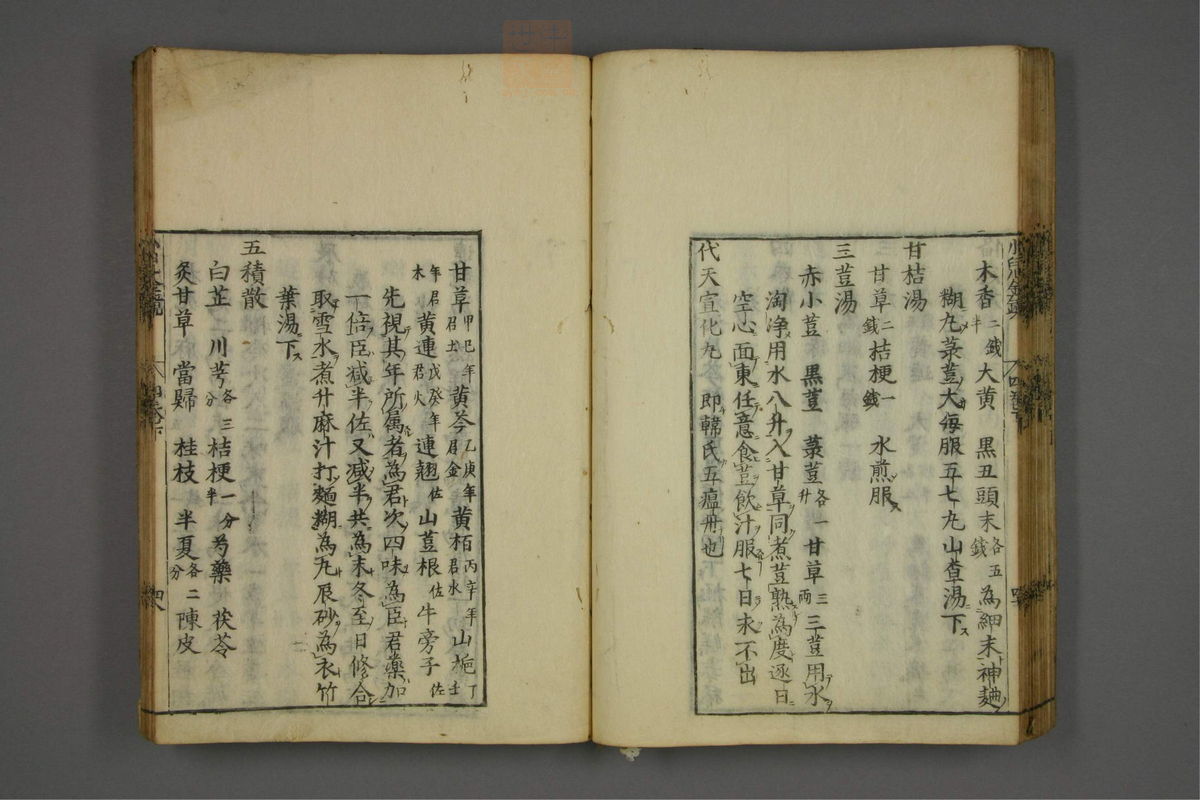 木香二戔半大黄 黒丑頭末各五戔為細末神麯
糊丸菉荳大每服五七丸山查湯下ス
甘桔湯
甘草二戔桔梗一戔 水煎服ス
三荳湯
赤小荳 黒荳 菉荳各一升甘草三両三荳用水
淘浄用水八升入甘草同煮荳熟為度逐日
空心面東任意食荳飲汁服七日末不出
代天宣化丸即韓氏五瘟丹也
甘草甲巳年君土黄芩乙庚年君金黄栢丙辛年君水山梔丁壬
年君木黄連戊癸年君火連翹佐山荳根佐牛旁子佐
先視其年所属者為君次四味為臣君藥加
一倍臣减半佐又减半共為末冬至日修合
取雪水煮升麻汁打麺糊為丸辰砂為衣竹
葉湯下ス
五積散
白芷 川芎各三分桔梗一分半芍藥 茯苓
炙甘草 當歸 桂枝 半夏各二分陳皮